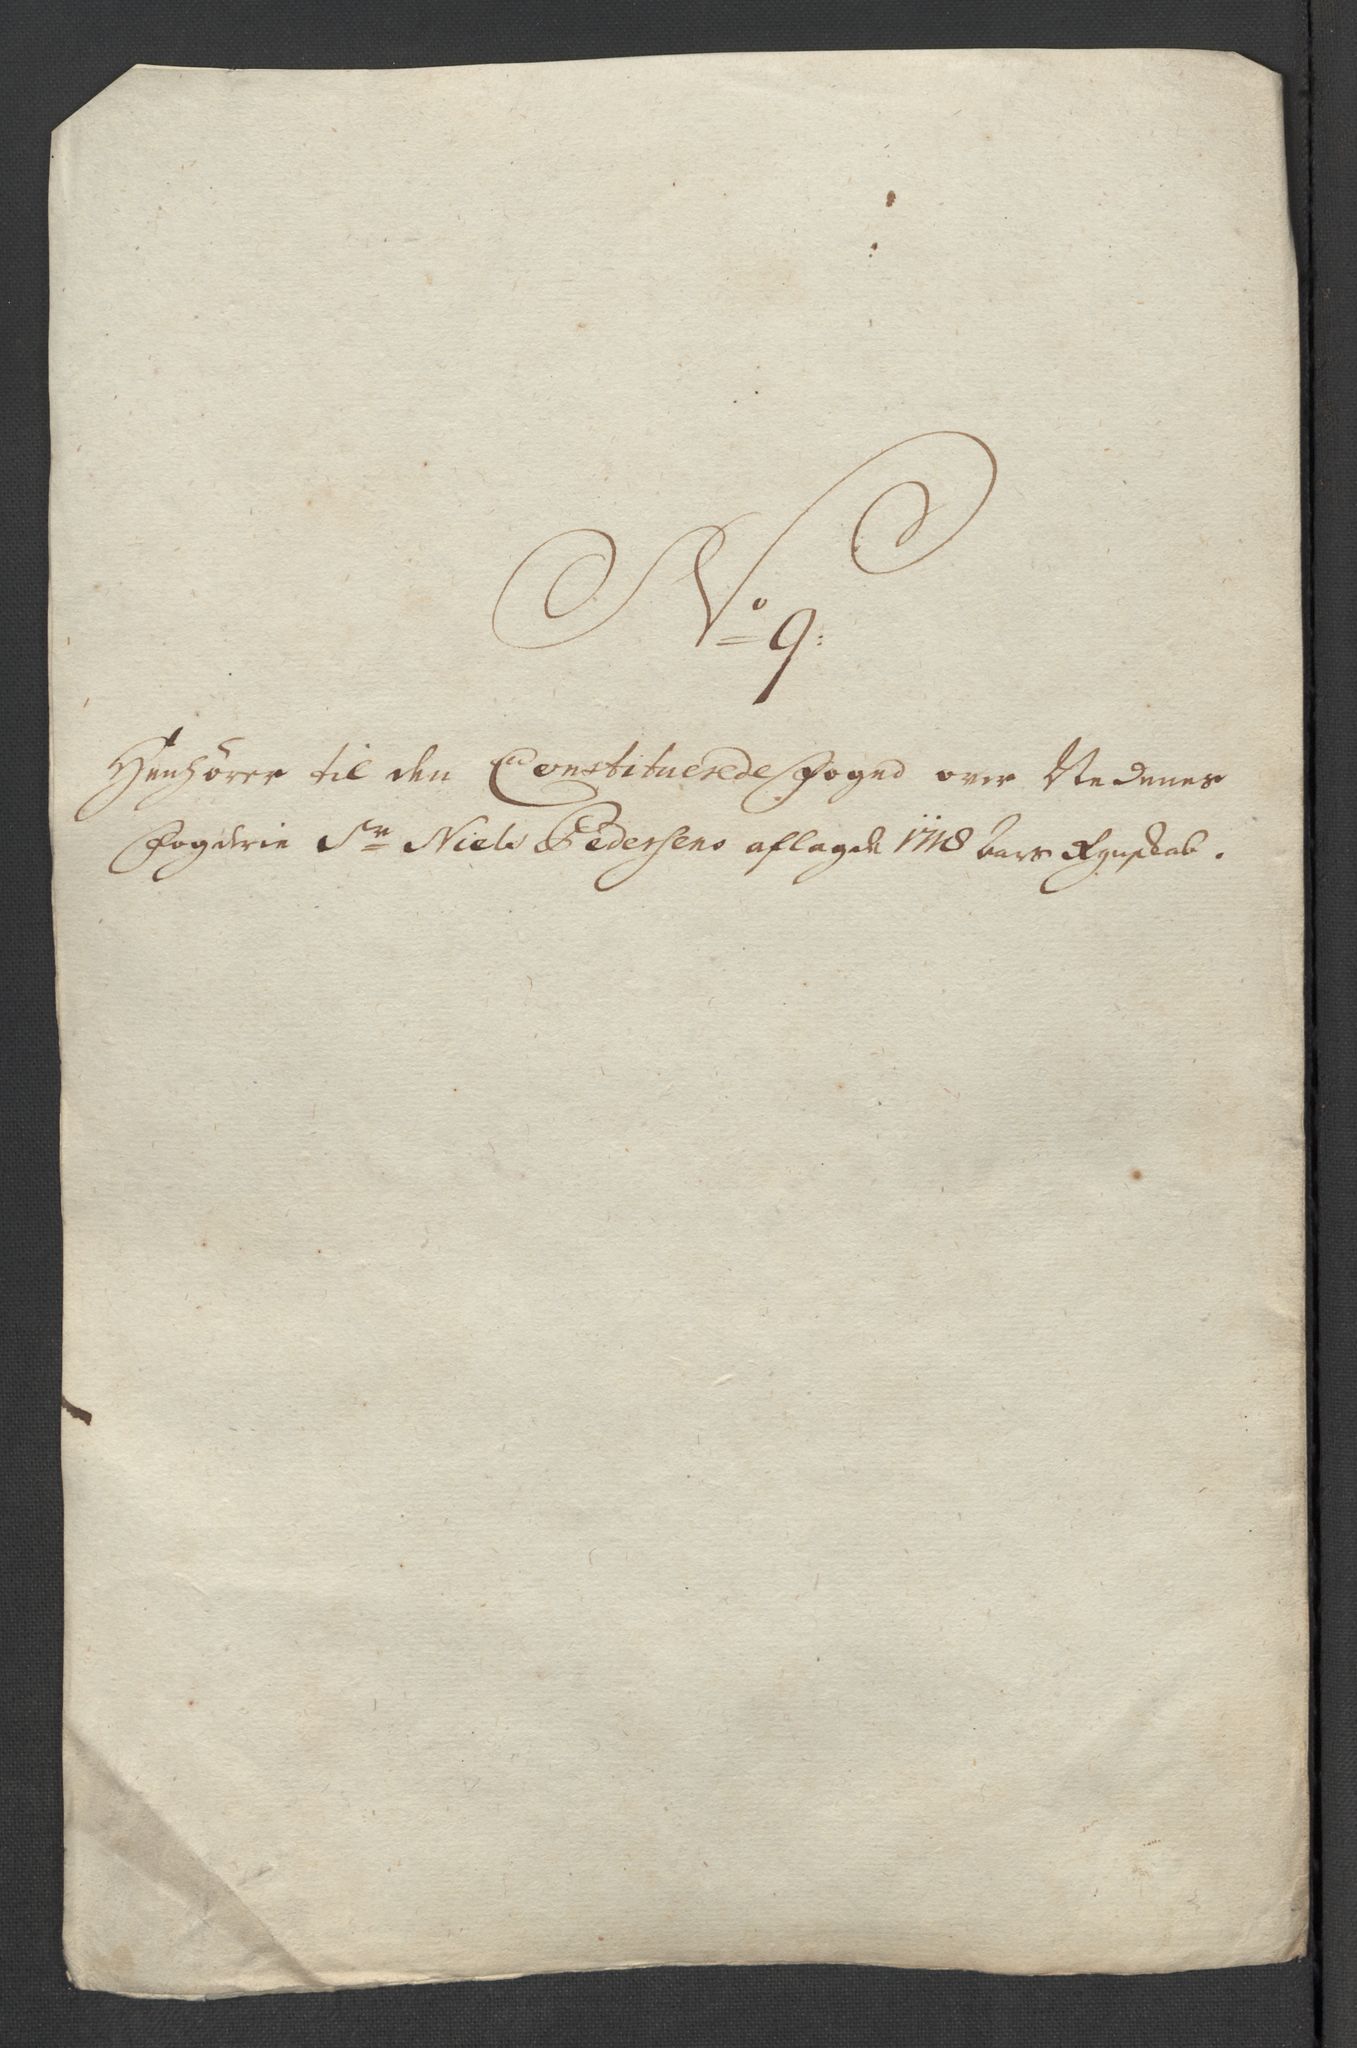 No 9:
Henhörer til den Constituerede Foged over Nedenes
Fogderie Sr Niels Pedersens aflagde 1718 aars Regnskab.